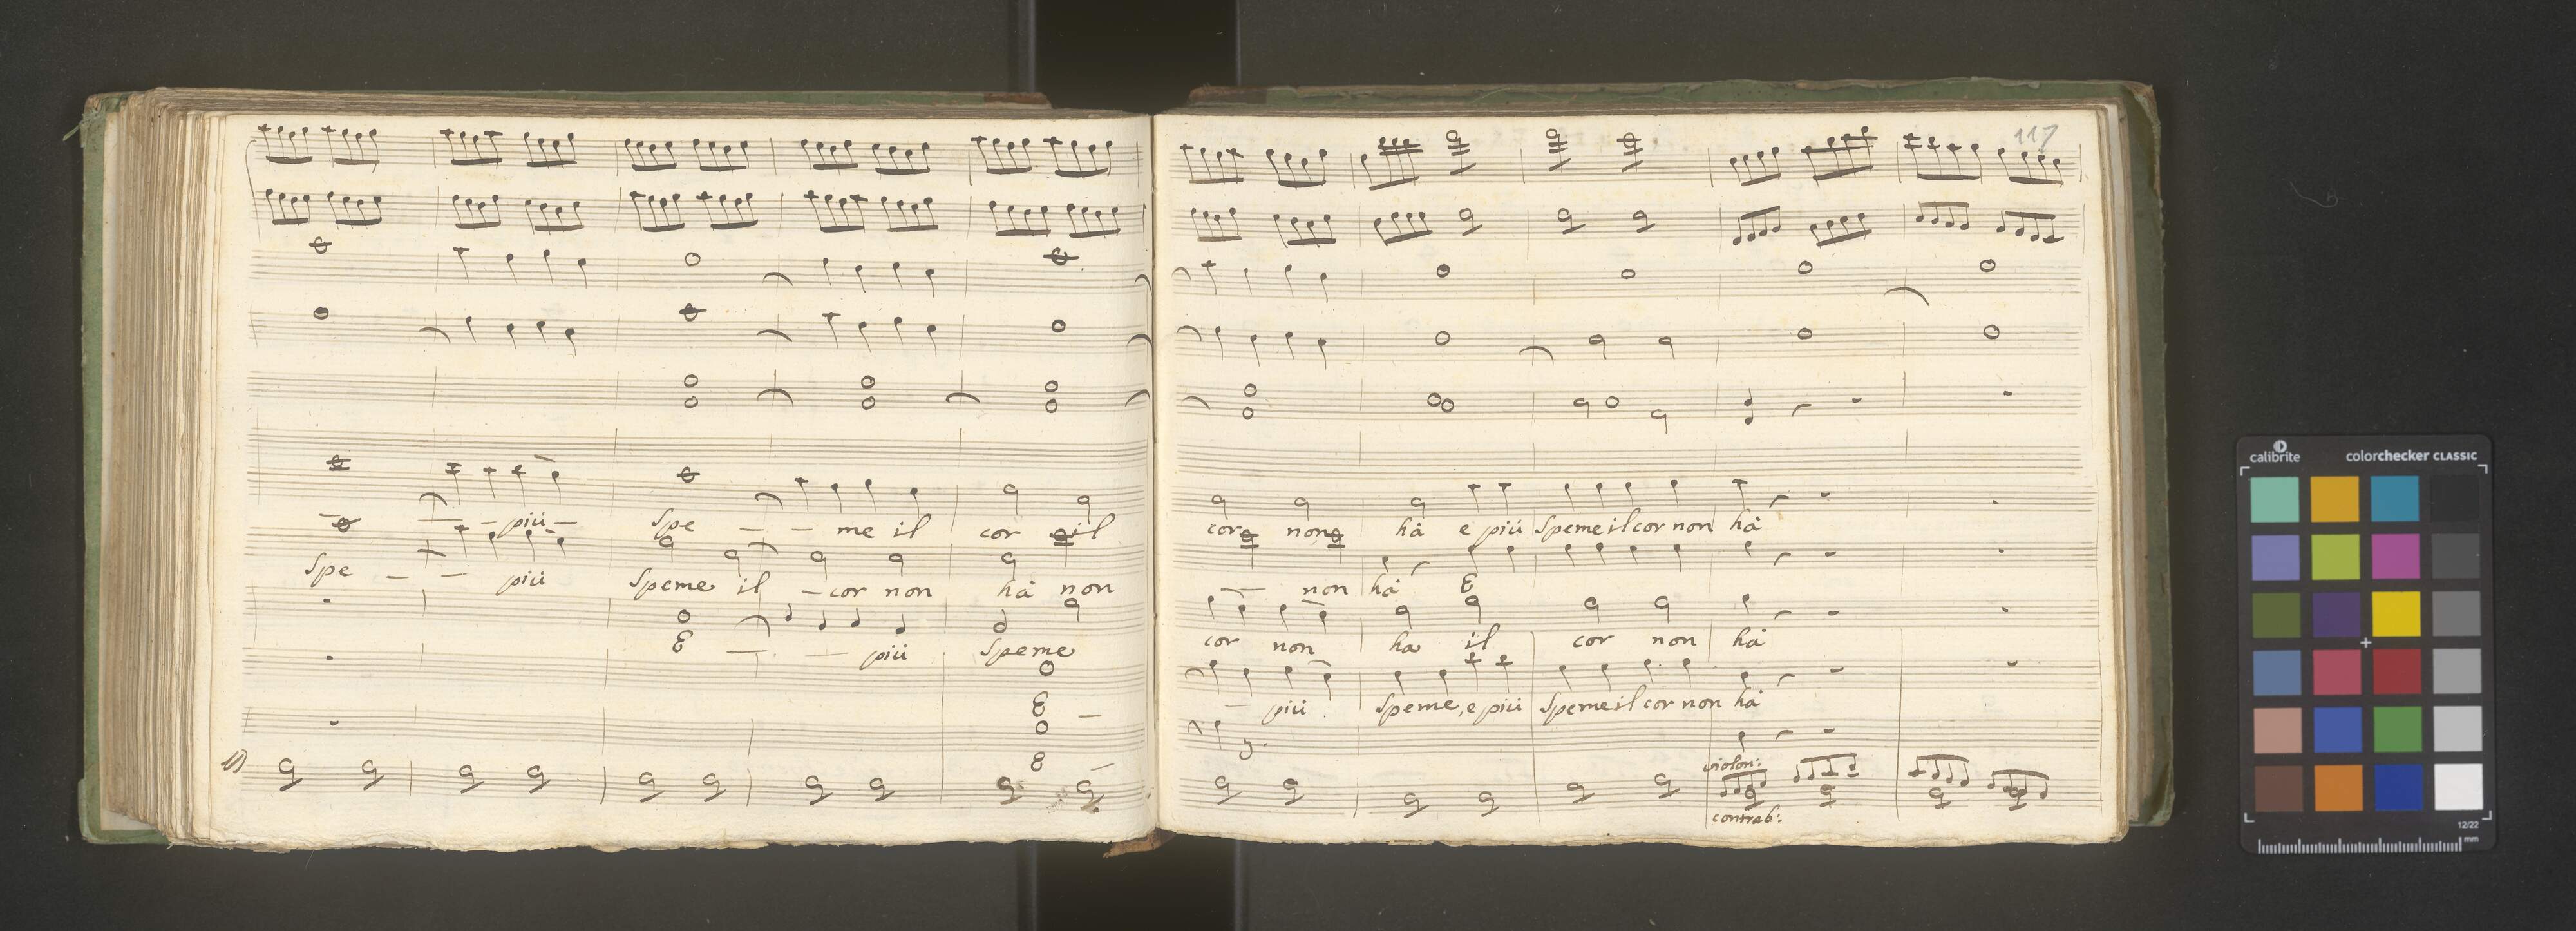 — — più —
Spe — — me il cor il
Spe — — più
Speme il — cor non hà non
E — — più Speme
E —
E —
117
cor non hà e più Speme il cor non hà
— non hà E
cor non ha il cor non hà
— più Speme, e più Speme il cor non hà
violon:
contrab:
calibrite colorchecker CLASSIC
12/22
mm